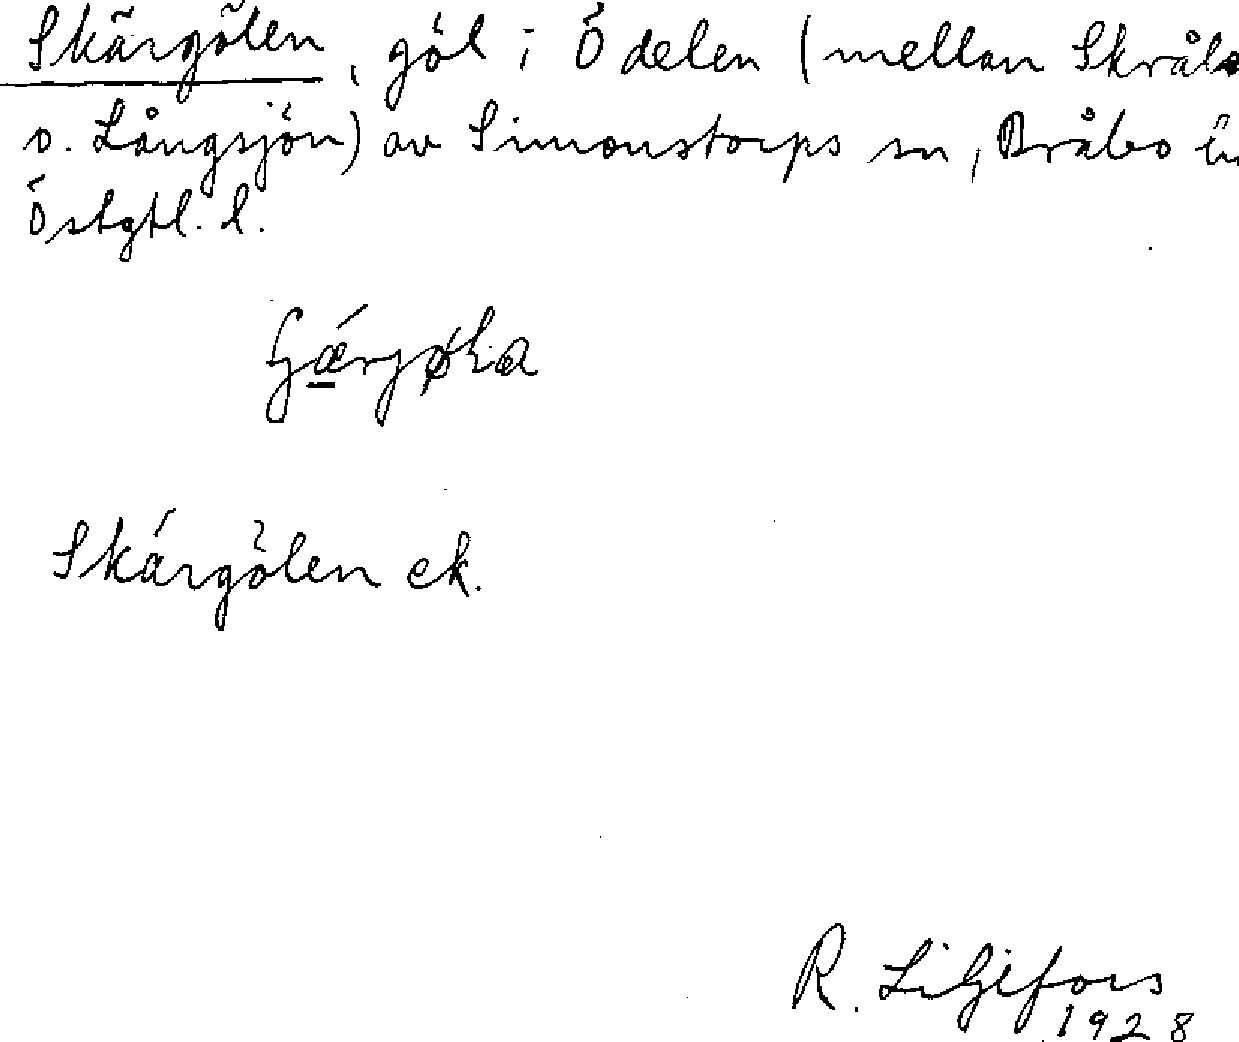 Skärgölen, göl i Ö delen (mellan
o. Långsjön) av Simonstorps sn, Bråbo
Östgtl. l.
Skärgölen ek.
R. Liljefors
1928